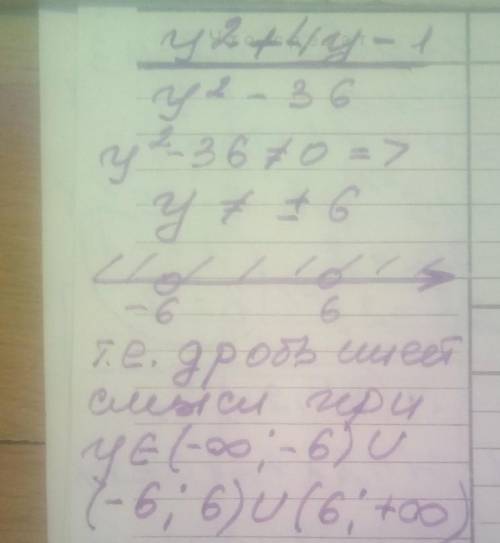 y² + 4y - 1
y² - 36
y² - 36 ≠ 0 =>
y ≠ ± 6
-6 6
т.е. дробь имеет
смысл при
y ∈ (-∞; -6) ∪
(-6; 6) ∪ (6; +∞)